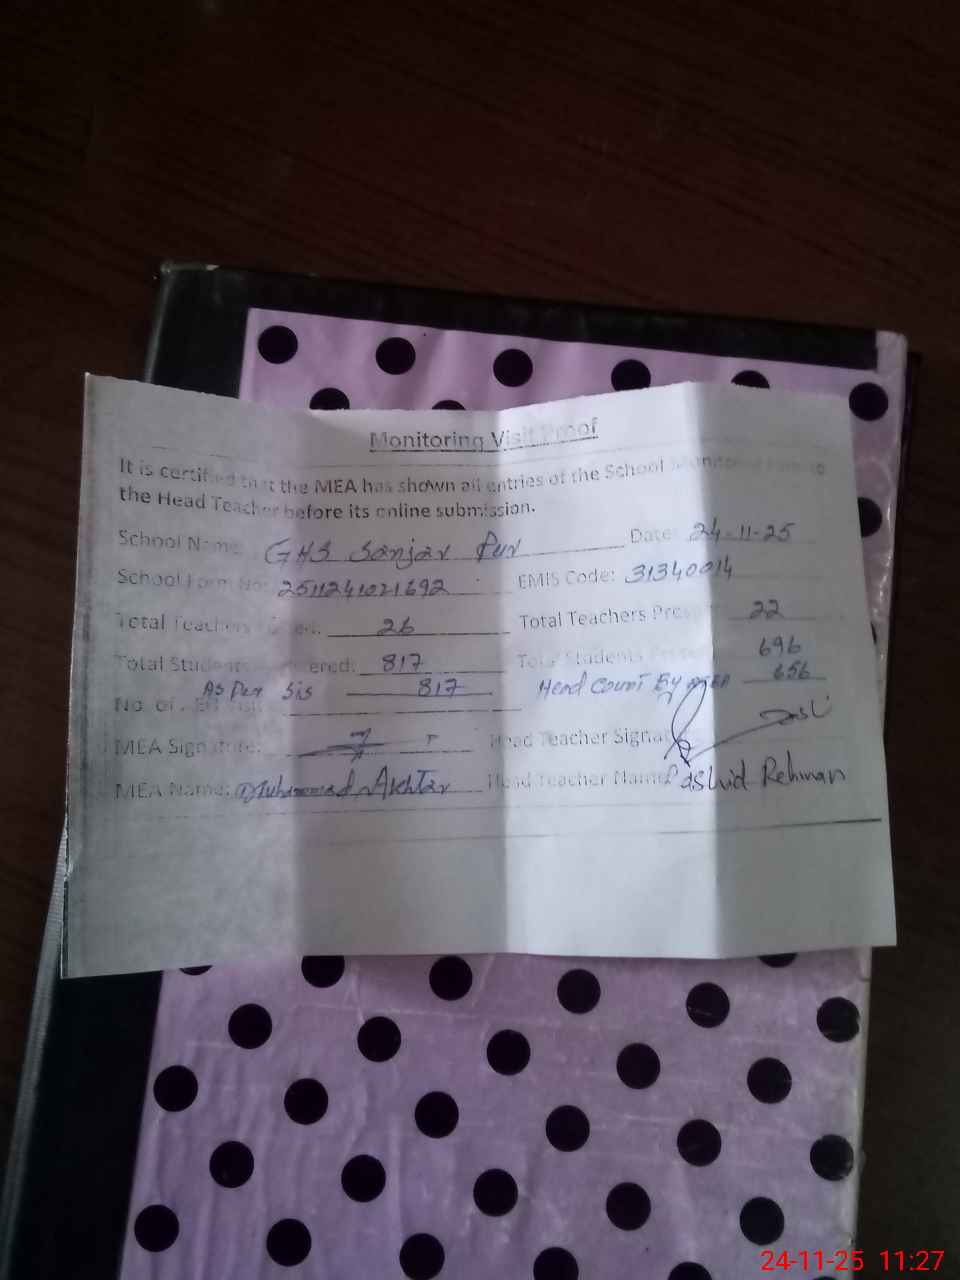 Monitoring Visit Proof
It is certified that the MEA has shown all entries of the School Monitoring Form to
the Head Teacher before its online submission.
School Name: GHS Sanjar Pur Date: 24-11-25
School Form No: 2511241021692 EMIS Code: 31340014
Total Teachers Posted: 26 Total Teachers Present 22
Total Students Registered: 817 Total Students Present 696
As Per Sis 817 Head Count By MEA 656
No. of
MEA Signature: Head Teacher Signature
MEA Name: Muhammad Akhtar Head Teacher Name Rashid Rehman
24-11-25 11:27